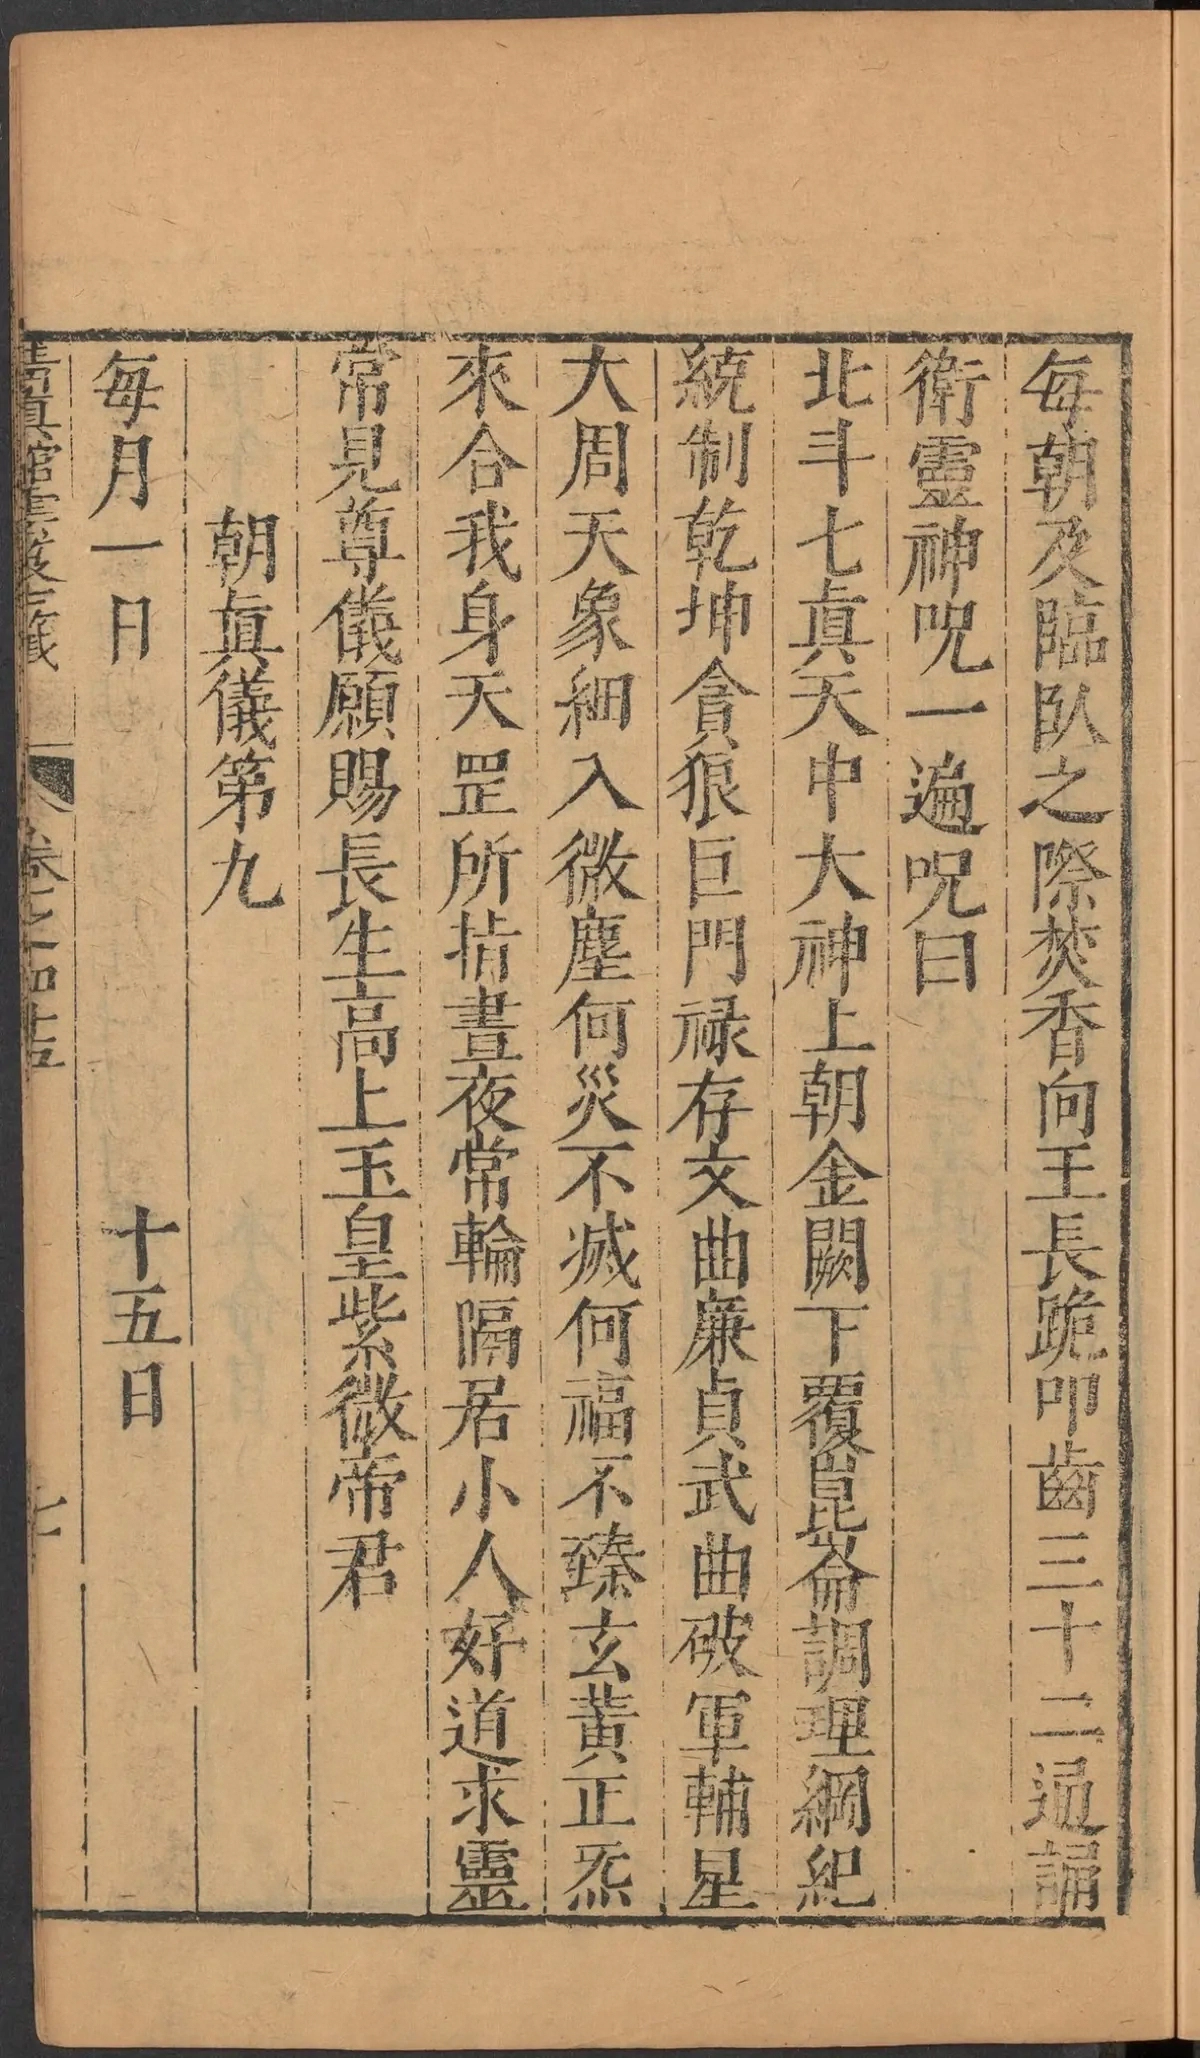 每朝及臨臥之際焚香向王長跪叩齒三十二通誦
衛靈神呪一遍呪曰
北斗七眞天中大神上朝金闕下覆崑崙調理綱紀
統制乾坤貪狼巨門禄存文曲廉貞武曲破軍輔星
大周天象細入微塵何災不滅何福不臻玄黃正炁
來合我身天罡所指晝夜常輪隔居小人好道求靈
常見尊儀願賜長生高上玉皇紫微帝君
朝眞儀第九
每月一日 十五日